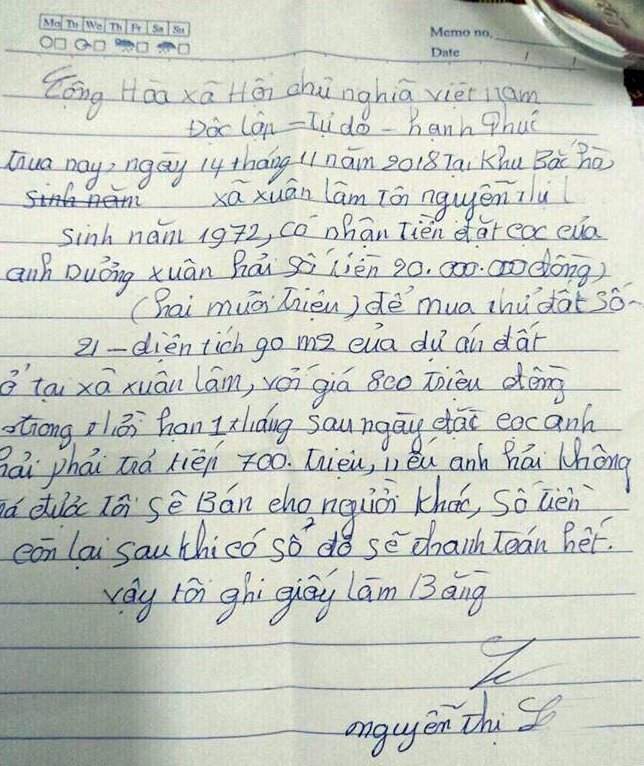 Mo Tu We Th Fr Sa Su
Memo no.
Date / /
Cộng Hòa xã Hội chủ nghĩa việt nam
Độc lập - Tự do - hạnh Phúc
trưa nay, ngày 14 tháng 11 năm 2018 Tại Khu Bắc hà
sinh năm xã xuân lâm Tôi nguyễn thị L
Sinh năm 1972, có nhận Tiền đặt cọc của
anh Dưởng xuân hải số tiền 20.000.000 đồng)
(hai mươi Triệu) để mua thử đất số
21 - diện tích 90 m2 của dự án đất
ở tại xã xuân lâm, với giá 800 Triệu đồng
trong thời hạn 1 tháng sau ngày đặt cọc anh
hải phải trả tiếp 700. triệu, nếu anh hải không
trả được Tôi sẽ Bán cho người khác, số tiền
còn lại sau khi có sổ đỏ sẽ thanh Toán hết.
vậy tôi ghi giấy làm Bằng
nguyễn Thị L